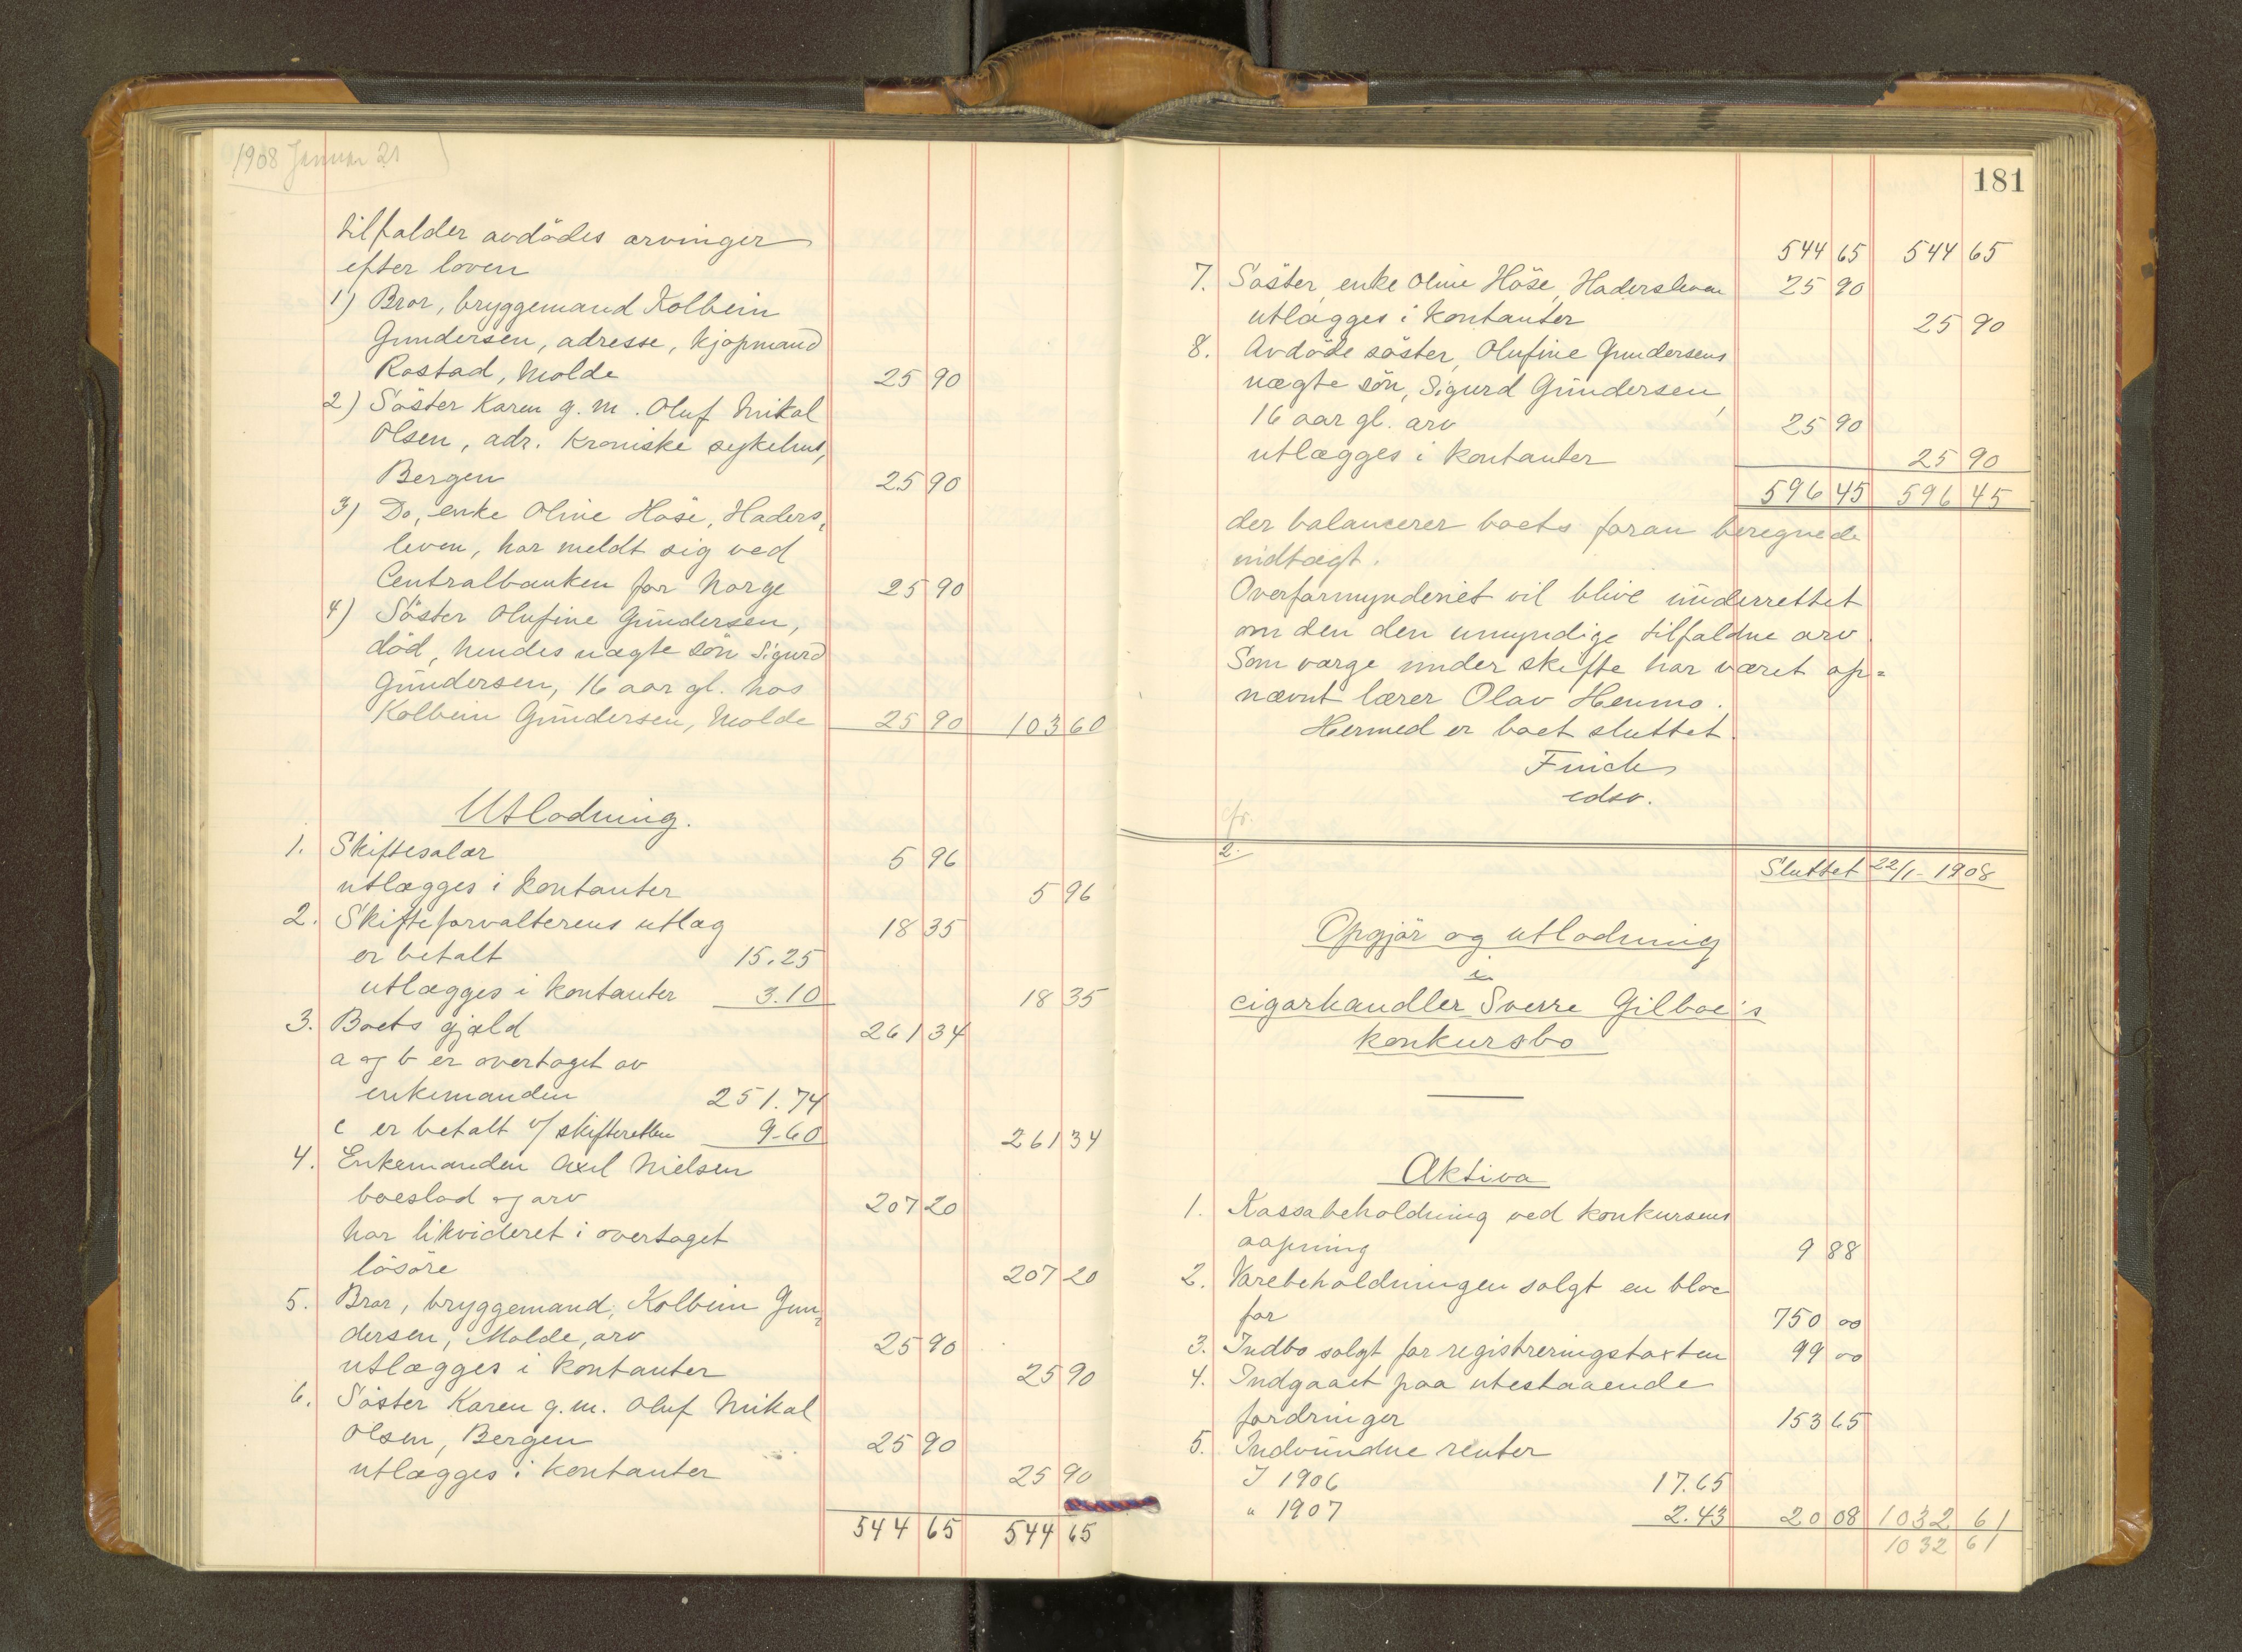 1908 Januar 21
tilfalder avdödes arvinger
efter loven
1) Bror, bryggemand Kolbein
Gundersen, adresse, kjøpmand
Rostad, Molde 25 90
2) Söster Karen g. m. Oluf Mikal
Olsen, adr. Kroniske sykehus,
Bergen 25 90
3) Do, enke Oline Höse, Haders,
leven, har meldt sig ved
Centralbanken for Norge 25 90
4) Söster Olufine Gundersen,
död, hendes uægte sön Sigurd
Gundersen, 16 aar gl. hos
Kolbein Gundersen, Molde 25 90 103 60
Utlodning.
1. Skiftesalær 5 96
utlægges i kontanter 5 96
2. Skifteforvalterens utlæg 18 35
er betalt 15.25
utlægges i kontanter 3.10 18 35
3. Boets gjæld 261 34
a og b er overtaget av
enkemanden 251.74
c er betalt v/ skifteretten 9.60 261 34
4. Enkemanden Axel Nielsen
boeslod og arv 207 20
har likvideret i overtaget
lösöre 207 20
5. Bror, bryggemand, Kolbein Gun,
dersen, Molde, arv 25 90
utlægges i kontanter 25 90
6. Söster Karen g. m. Oluf Mikal
Olsen, Bergen 25 90
utlægges i kontanter 25 90
544 65 544 65
181
544 65 544 65
7. Söster, enke Oline Höse, Hadersleven 25 90
utlægges i kontanter 25 90
8. Avdöde söster, Olufine Gundersens
uægte sön, Sigurd Gundersen,
16 aar gl. arv 25 90
utlægges i kontanter 25 90
596 45 596 45
der balancerer boets foran beregnede
indtægt.
Overformynderiet vil blive underrettet
om den den umyndige tilfaldne arv.
Som værge under skifte har været op=
nævnt lærer Olav Henmo.
Hermed er boet sluttet.
Finck
edsv.
cfr.
2.
Sluttet 22/1-1908
Opgjör og utlodning
i
cigarhandler Sverre Gilboe's
konkursbo
Aktiva
1. Kassabeholdning ved konkursens
aapning 9 88
2. Varebeholdningen solgt en bloc
for 750 00
3. Indbo solgt for registreringstaxten 99 00
4. Indgaaet paa utestaaende
fordringer 153 65
5. Indvundne renter
I 1906 17.65
" 1907 2.43 20 08 1032 61
1032 61